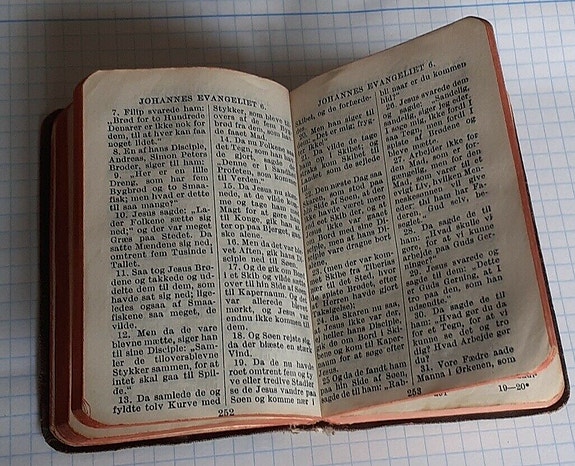 JOHANNES EVANGELIET 6.
7. Filip svarede ham:
„Brød for to Hundrede
Denarer er ikke nok for
dem, til at hver kan faa
noget lidet.“
8. En af hans Disciple,
Andreas, Simon Peters
Broder, siger til ham:
9. „Her er en lille
Dreng, som har fem
Bygbrød og to Smaa-
fisk; men hvad er dette
til saa mange?“
10. Jesus sagde: „La-
der Folkene sætte sig
ned;“ og der var meget
Græs paa Stedet. Da
satte Mændene sig ned,
omtrent fem Tusinde i
Tallet.
11. Saa tog Jesus Brø-
dene og takkede og ud-
delte dem til dem, som
havde sat sig ned; lige-
ledes ogsaa af Smaa-
fiskene saa meget, de
vilde.
12. Men da de vare
blevne mætte, siger han
til sine Disciple: „Sam-
ler de tiloversblevne
Stykker sammen, for at
intet skal gaa til Spil-
de.“
13. Da samlede de og
fyldte tolv Kurve med
Stykker, som bleve til
overs af de fem Byg
brød fra dem, som ha
de faaet Mad.
14. Da nu Folkene
det Tegn, som han
de gjort, sagde
„Denne er i Sandhe
Profeten, som komm
til Verden.“
15. Da Jesus nu sk
nede, at de vilde kom
me og tage ham
Magt for at gøre ham
til Konge, gik han at
ter op paa Bjerget, ene
16. Men da det var ble
vet Aften, gik hans Di
sciple ned til Søen.
17. Og de gik om Bord
i et Skib og vilde sætte
over til hin Side af Søen
til Kapernaum. Og de
var allerede blevet
mørkt, og Jesus var
endnu ikke kommet til
dem.
18. Og Søen rejste sig,
da der blæste en stærk
Vind.
19. Da de nu havde
roet omtrent fem og ty
ve eller tredive Stadier,
se de Jesus vandre paa
Søen og komme nær
252
JOHANNES EVANGELIET 6.
Skibet, og de forfærde-
Men han siger til
„Det er mig; fryg-
vilde de tage
op i Skibet;
kom Skibet
til Landet, som de sejlede
Næste Dag saa
Skaren, som stod paa
hin Side af Søen, at der
ikke havde været mere
end eet Skib der, og at
Jesus ikke var gaaet
om Bord med sine Di-
sciple, men at hans Di-
sciple vare dragne bort
23. (men der var kom-
met Skibe fra Tiberias
nær til det Sted, hvor
de spiste Brødet, efter
at Herren havde gjort
24. da Skaren nu saa,
at Jesus ikke var der,
ej heller hans Disciple,
gik de om Bord i Ski-
bene og kom til Kaper-
naum for at søge efter
Jesus.
25. Og da de fandt ham
paa hin Side af Søen,
sagde de til ham: „Rab-
bi! naar er du kommen
hid?“
26. Jesus svarede dem
og sagde: „Sandelig,
sandelig, siger jeg eder,
I søge mig, ikke fordi I
saa Tegn, men fordi I
spiste af Brødene og
bleve mætte.
27. Arbejder ikke for
den Mad, som er for-
gængelig, men for den
Mad, som varer til et
evigt Liv, hvilken Men-
neskesønnen vil give
eder; thi ham har Fa-
deren, Gud selv, be-
seglet.“
28. Da sagde de til
ham: „Hvad skulle vi
gøre, for at vi kunne
arbejde paa Guds Ger-
ninger?“
29. Jesus svarede og
sagde til dem: „Dette
er Guds Gerning, at I
tro paa den, som han
udsendte.“
30. Da sagde de til
ham: „Hvad gør du da
for et Tegn, for at vi
kunne se det og tro
dig? Hvad Arbejde gør
du?
31. Vore Fædre aade
Manna i Ørkenen, som
253
19—20*